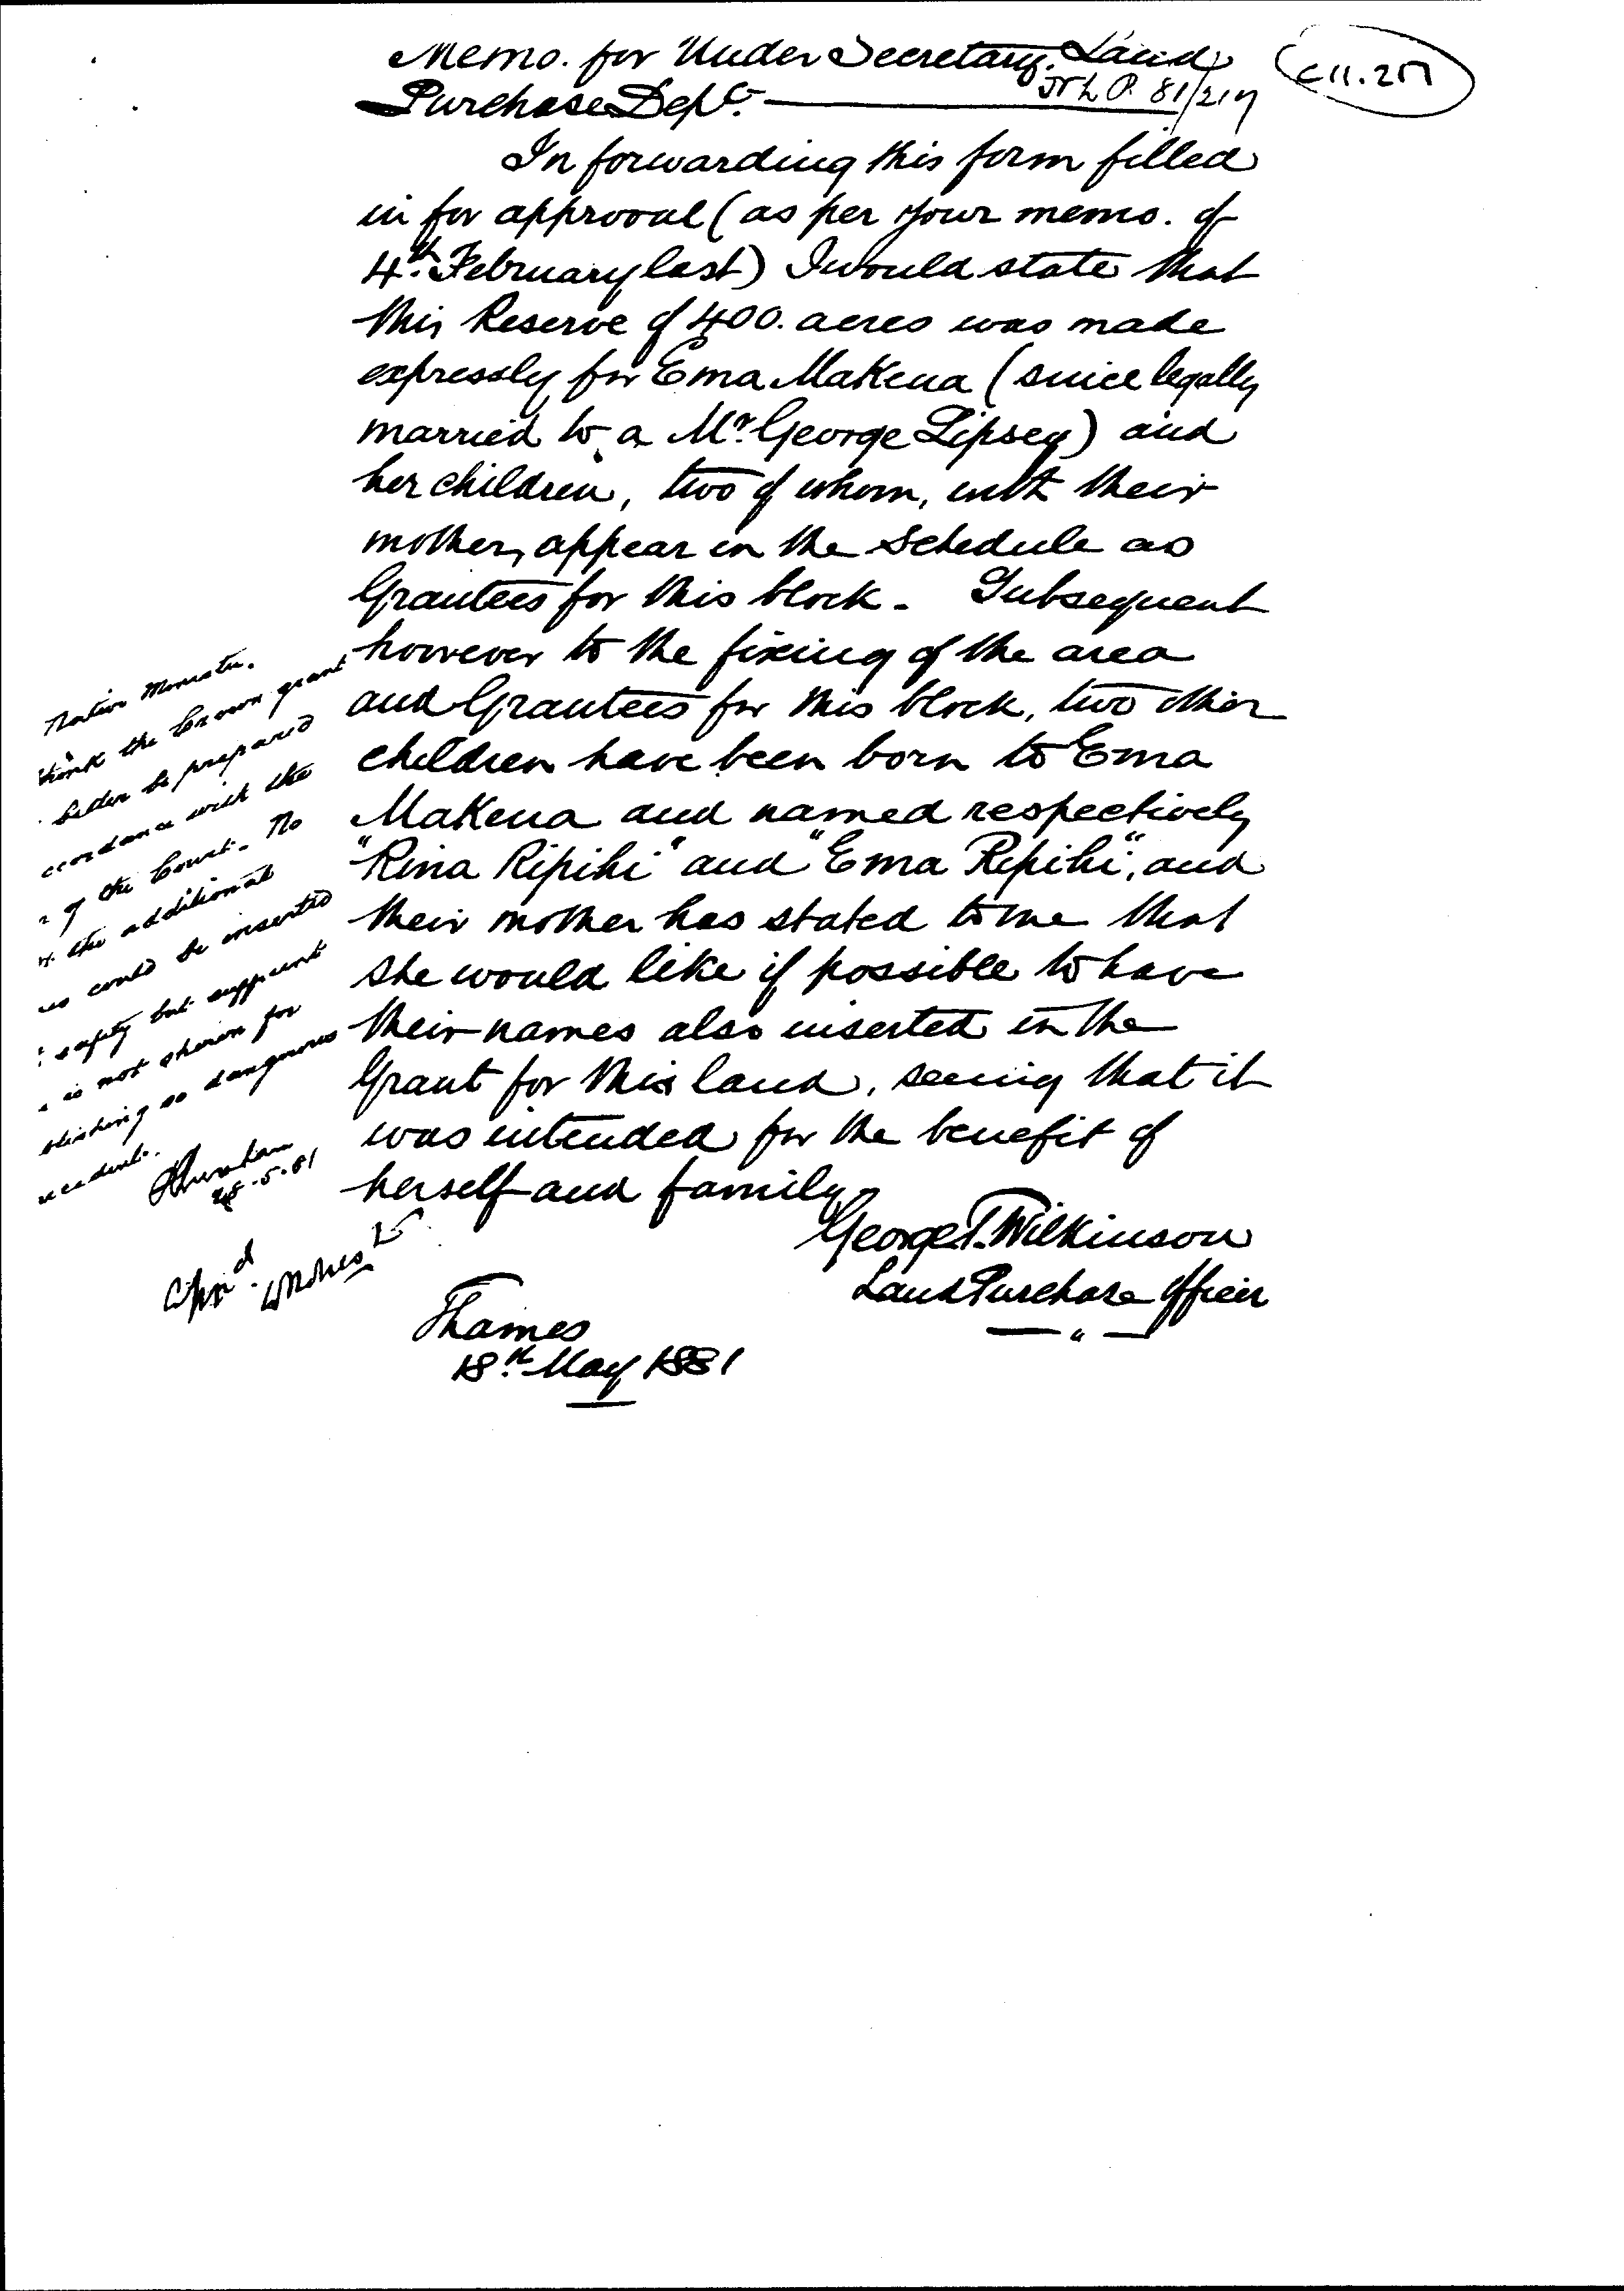 Memo. for Under Secretary. Land
Purchase Dept.
N L P. 81/217
In forwarding this form filled
in for approval (as per your memo. of
4th February last) I would state that
this Reserve of 400. acres was made
expressly for Ema Makena (since legally
married to a Mr. George Lipsey) and
her children, two of whom, with their
mother, appear in the Schedule as
Grantees for this block. Subsequent
however to the fixing of the area
and Grantees for this block, two other
children have been born to Ema
Makena and named respectively
"Rina Ripihi" and "Ema Repihi", and
their mother has stated to me that
she would like if possible to have
their names also inserted in the
Grant for this land, seeing that it
was intended for the benefit of
herself and family
George T. Wilkinson
Land Purchase Officer
Thames
18th May 1881
Native Minister.
think the Crown grant
better be prepared
ccordance with the
of the Court. No
the additional
could be inserted
safety but sufficient
is not shown for
blishing so dangerous
ecedent.
28.5.81
Appd.